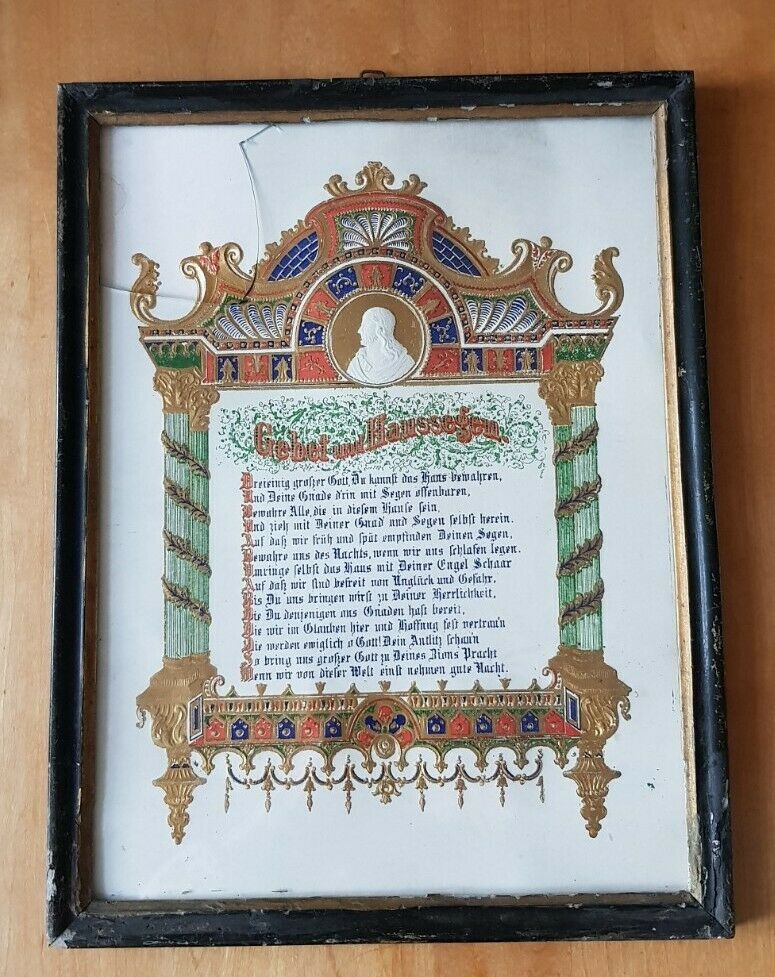 Gebet und Haussegen.
Dreieinig großer Gott, Du kannst das Haus bewahren,
Und Deine Gnade d'rin mit Segen offenbaren,
Bewahre Alle, die in diesem Hause sein,
Und zieh mit Deiner Gnad' und Segen selbst herein.
Auf daß wir früh und spät empfinden Deinen Segen,
Bewahre uns des Nachts, wenn wir uns schlafen legen.
Umringe selbst das Haus mit Deiner Engel Schaar
Auf daß wir sind befreit von Unglück und Gefahr.
Bis Du uns bringen wirst zu Deiner Herrlichkeit,
Die Du denjenigen aus Gnaden hast bereit,
Die wir im Glauben hier und Hoffnung fest vertrau'n
Die werden ewiglich o Gott! Dein Antlitz schau'n
So bring uns großer Gott zu Deines Zions Pracht
Wenn wir von dieser Welt einst nehmen gute Nacht.